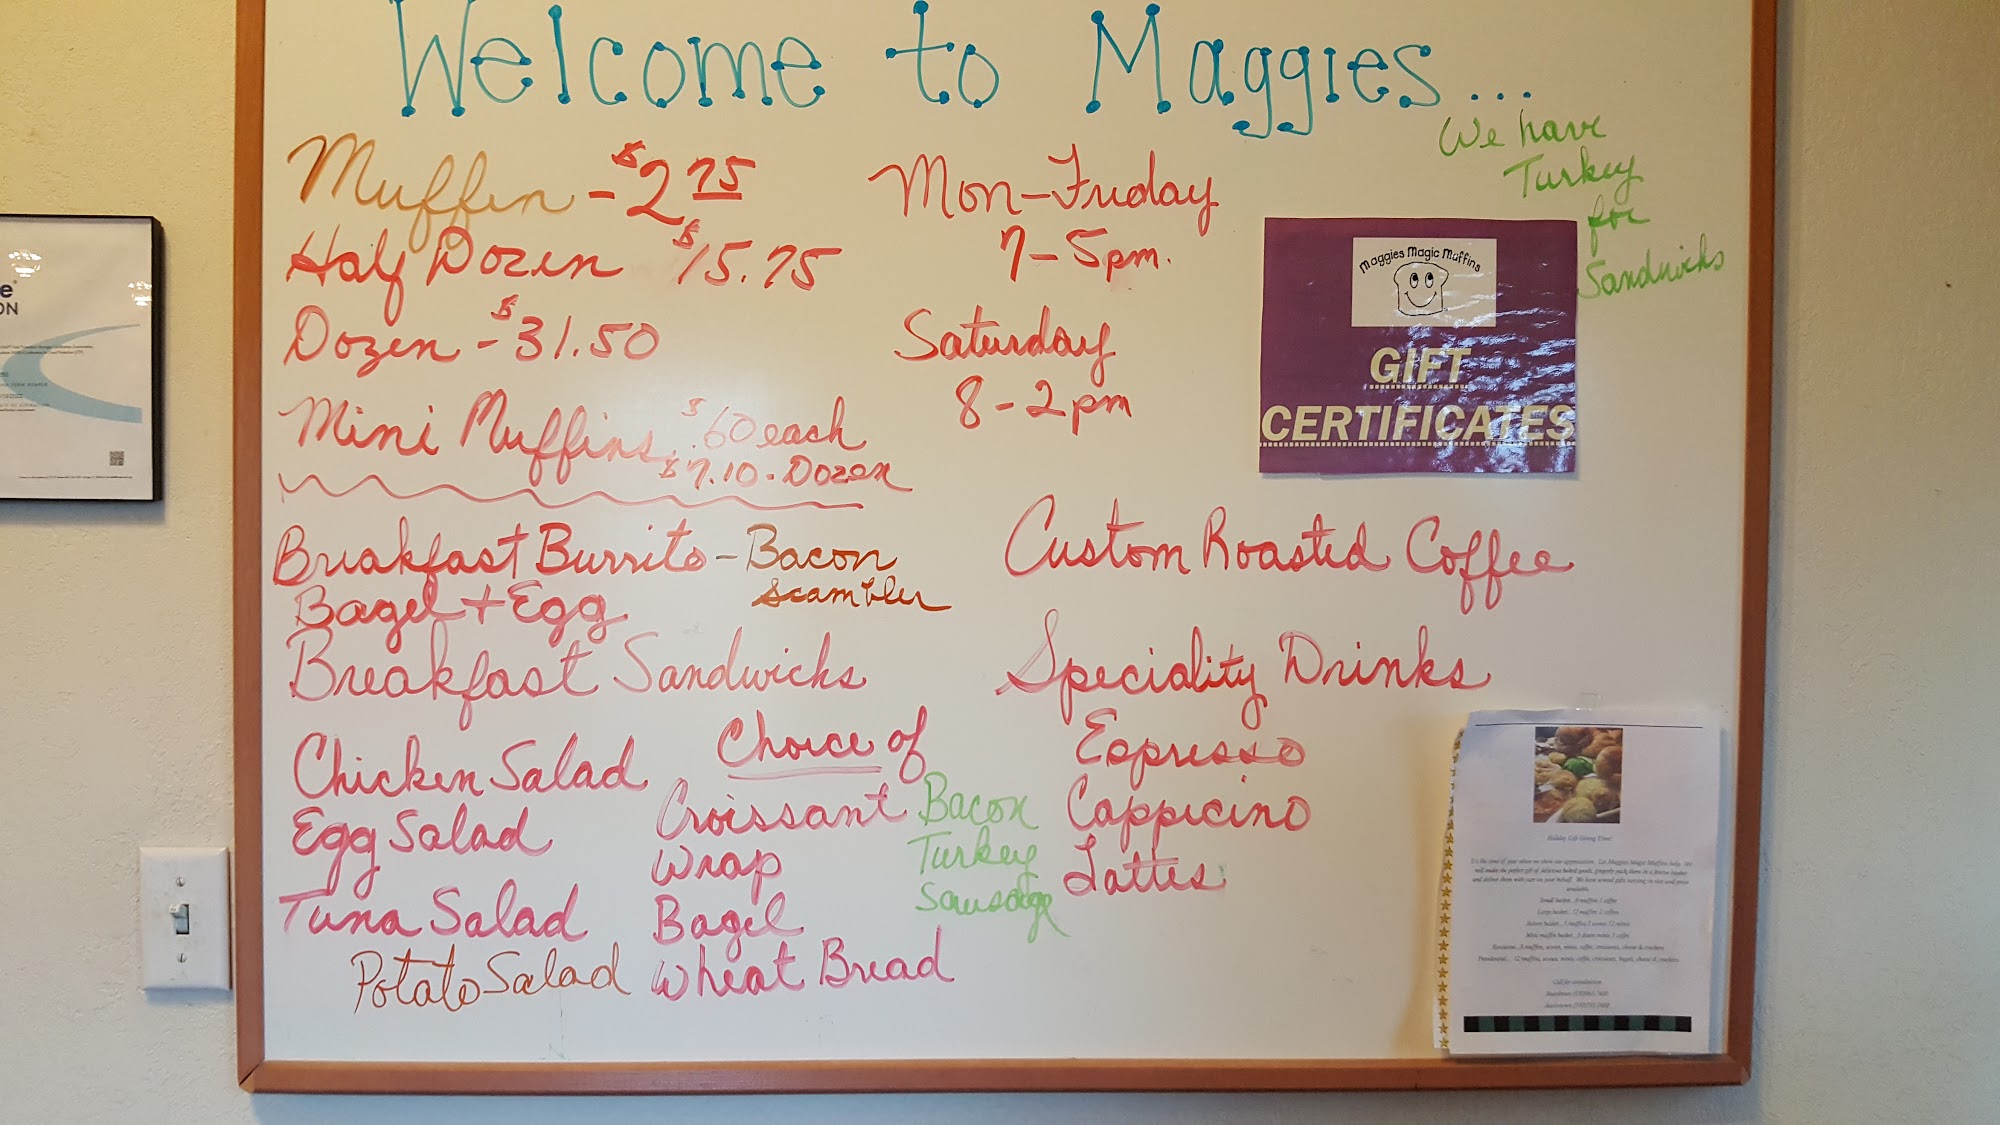 Welcome to Maggies...
Muffin - $2.75
Half Dozen $15.75
Dozen - $31.50
Mini Muffins $.60 each
$7.10 - Dozen
Mon-Friday
7-5pm.
Saturday
8-2pm
We have
Turkey
for
Sandwichs
Maggies Magic Muffins
GIFT
CERTIFICATES
Breakfast Burrito - Bacon
Scambler
Bagel + Egg
Breakfast Sandwichs
Chicken Salad
Egg Salad
Tuna Salad
Potato Salad
Choice of
Croissant
Wrap
Bagel
Wheat Bread
Bacon
Turkey
Sausage
Custom Roasted Coffee
Speciality Drinks
Espresso
Cappicino
Lattes
Holiday Gift Giving Time!
Call for consultation